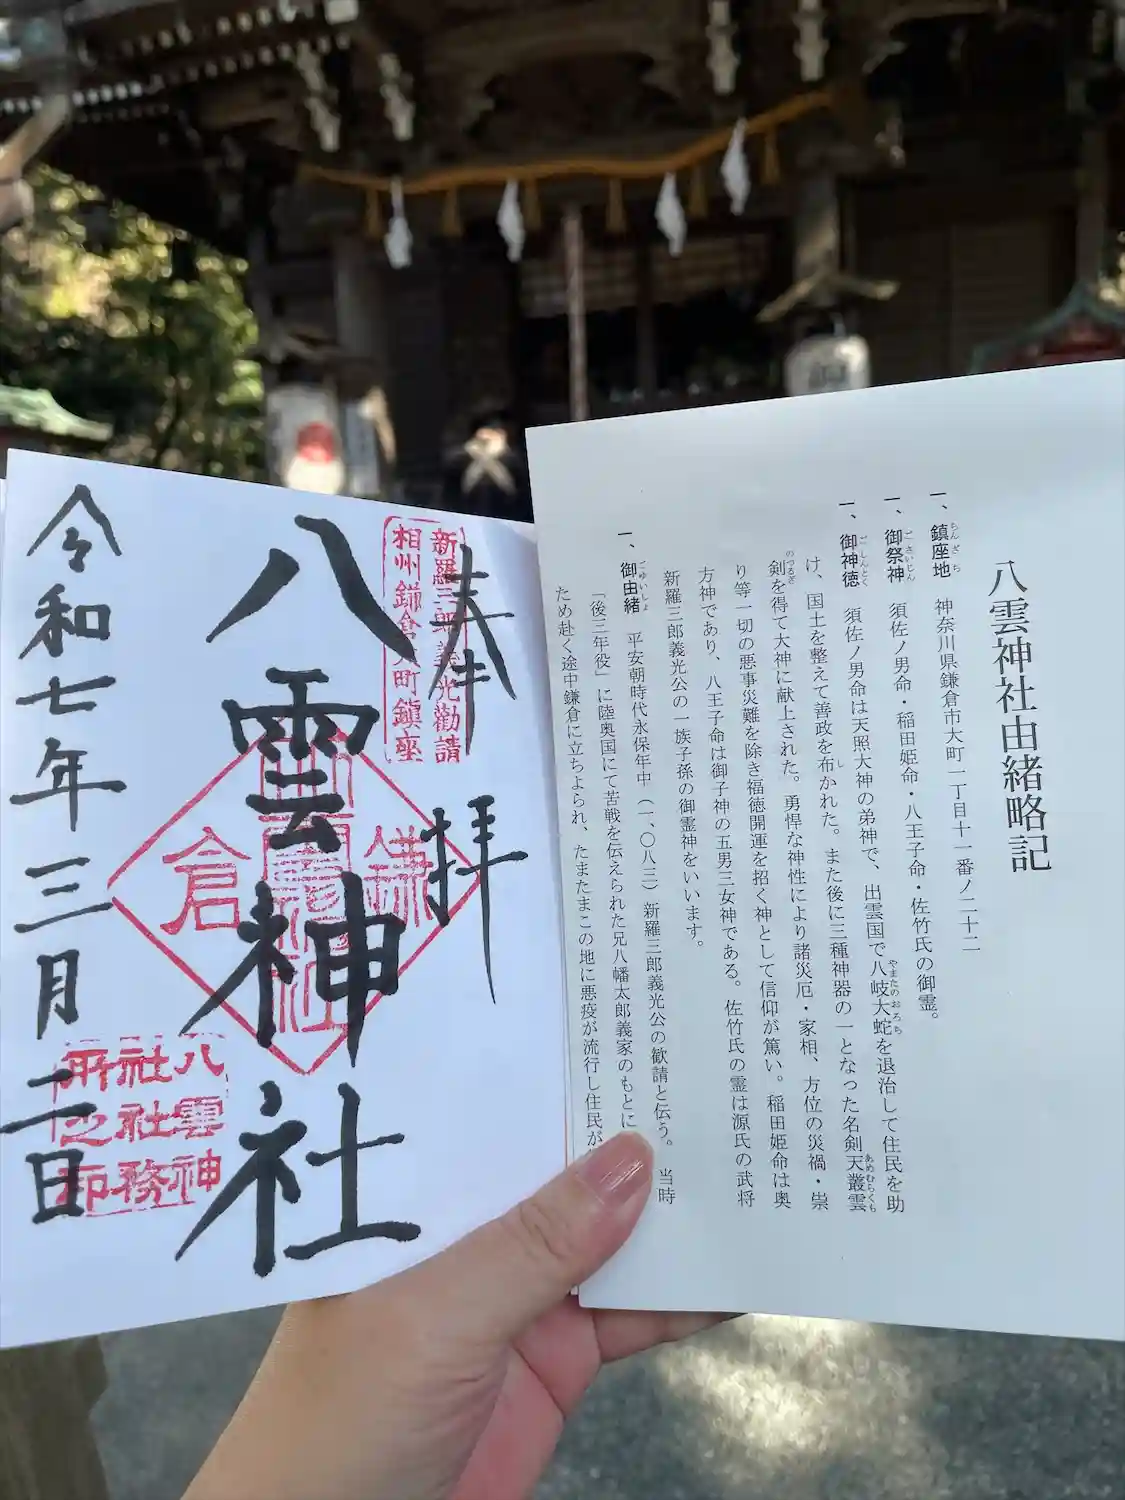 八雲神社由緒略記
一、鎮座地 神奈川県鎌倉市大町一丁目十一番ノ二十二
一、御祭神 須佐ノ男命・稲田姫命・八王子命・佐竹氏の御霊。
一、御神徳 須佐ノ男命は天照大神の弟神で、出雲国で八岐大蛇を退治して住民を助
け、国土を整えて善政を布かれた。また後に三種神器の一となった名剣天叢雲
剣を得て大神に献上された。勇悍な神性により諸災厄・家相、方位の災禍・祟
り等一切の悪事災難を除き福徳開運を招く神として信仰が篤い。稲田姫命は奥
方神であり、八王子命は御子神の五男三女神である。佐竹氏の霊は源氏の武将
新羅三郎義光公の一族子孫の御霊神をいいます。
一、御由緒 平安朝時代永保年中(一、〇八三)新羅三郎義光公の歓請と伝う。当時
「後三年役」に陸奥国にて苦戦を伝えられた兄八幡太郎義家のもとに
ため赴く途中鎌倉に立ちよられ、たまたまこの地に悪疫が流行し住民が
奉拝
新羅三郎義光勸請
相州鎌倉大町鎮座
八雲神社
鎌倉
令和七年三月二日
八雲神
社社務
所之印